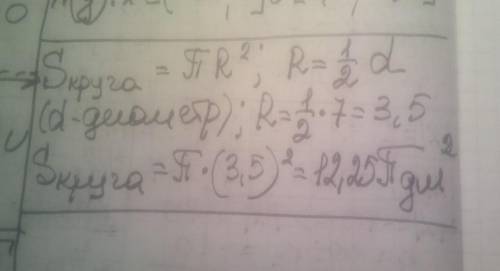 Sкруга = ПR²; R = 1/2 d
(d-диаметр); R = 1/2 · 7 = 3,5
Sкруга = П · (3,5)² = 12,25П дм²